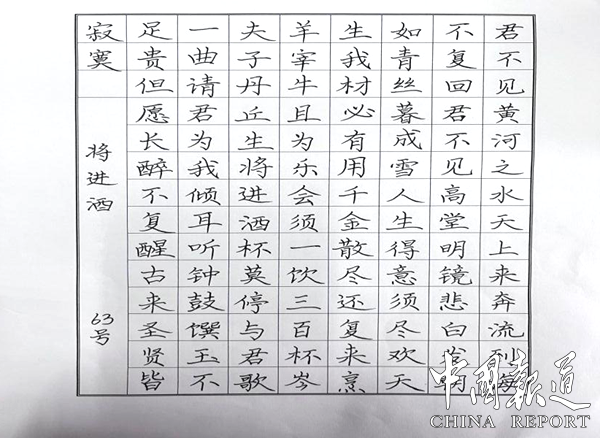 君不见黄河之水天上来奔流到海
不复回君不见高堂明镜悲白发朝
如青丝暮成雪人生得意须尽欢天
生我材必有用千金散尽还复来烹
羊宰牛且为乐会须一饮三百杯岑
夫子丹丘生将进酒杯莫停与君歌
一曲请君为我倾耳听钟鼓馔玉不
足贵但愿长醉不复醒古来圣贤皆
寂寞 将进酒 63号
中国报道
CHINA REPORT